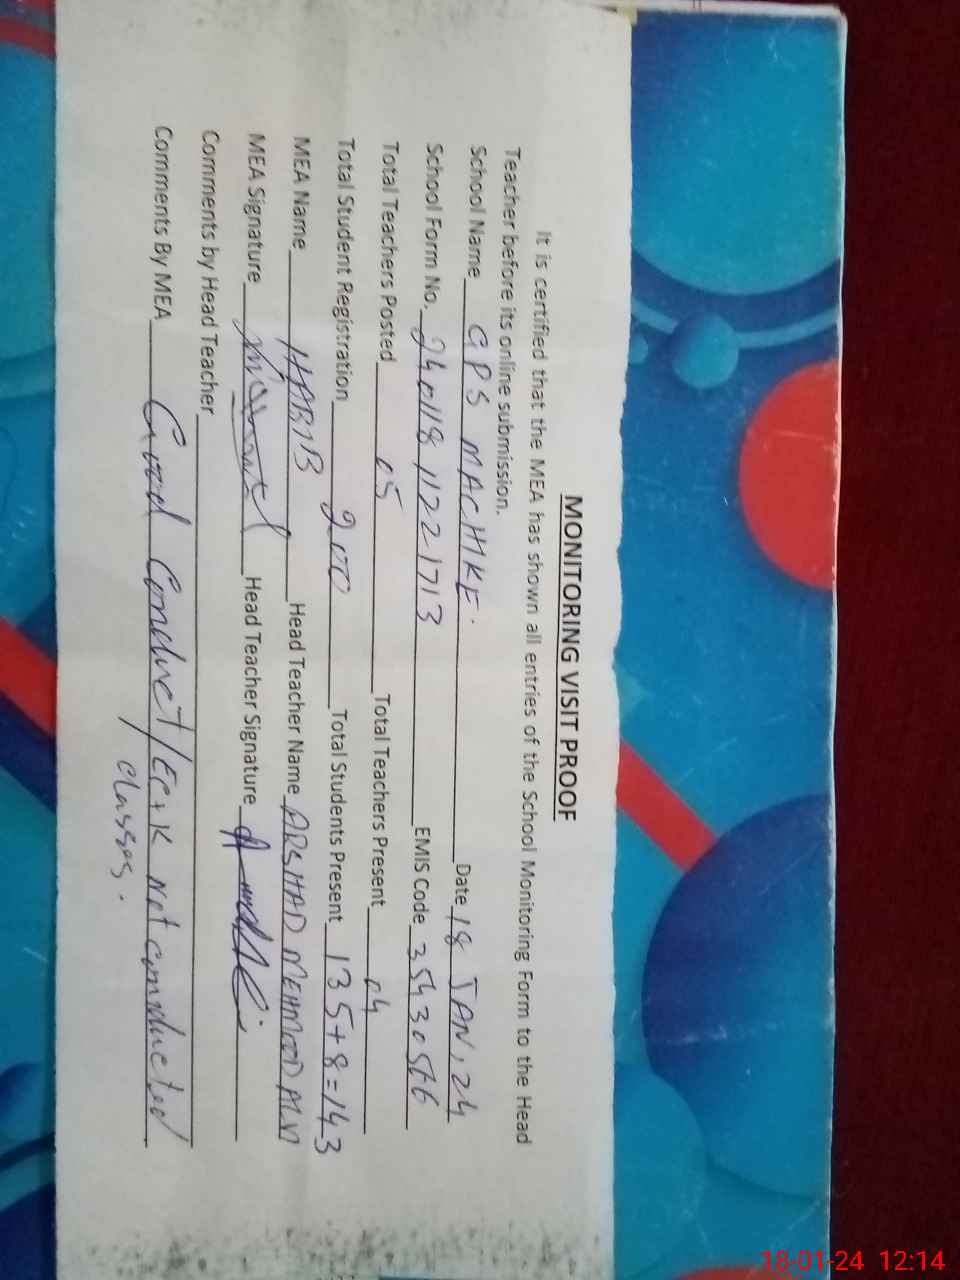 MONITORING VISIT PROOF
It is certified that the MEA has shown all entries of the School Monitoring Form to the Head
Teacher before its online submission.
School Name GPS MACHIKE. Date 18 JAN, 24
School Form No. 240118 11221713 EMIS Code
Total Teachers Posted 05 Total Teachers Present 04
Total Student Registration 200 Total Students Present 135+8=143
MEA Name HABIB Head Teacher Name ARSHAD MEHMOOD
MEA Signature Head Teacher Signature
Comments by Head Teacher
Comments By MEA Good Conduct/ not conducted
classes.
18-01-24 12:14